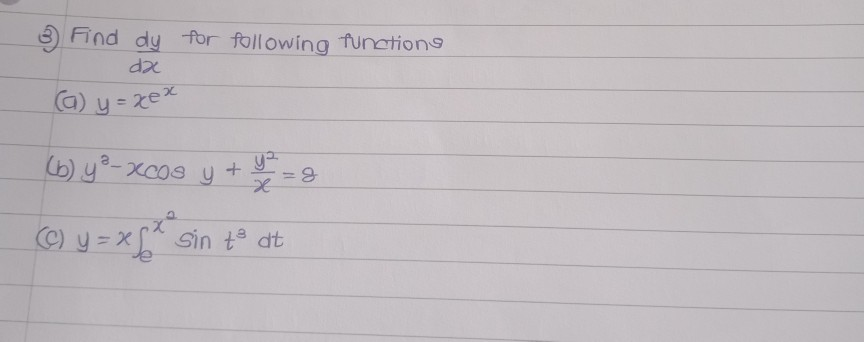 ③ Find dy/dx for following functions
(a) y = xe^x
(b) y³ - xcos y + y²/x = 8
(c) y = x∫_e^x² sin t³ dt